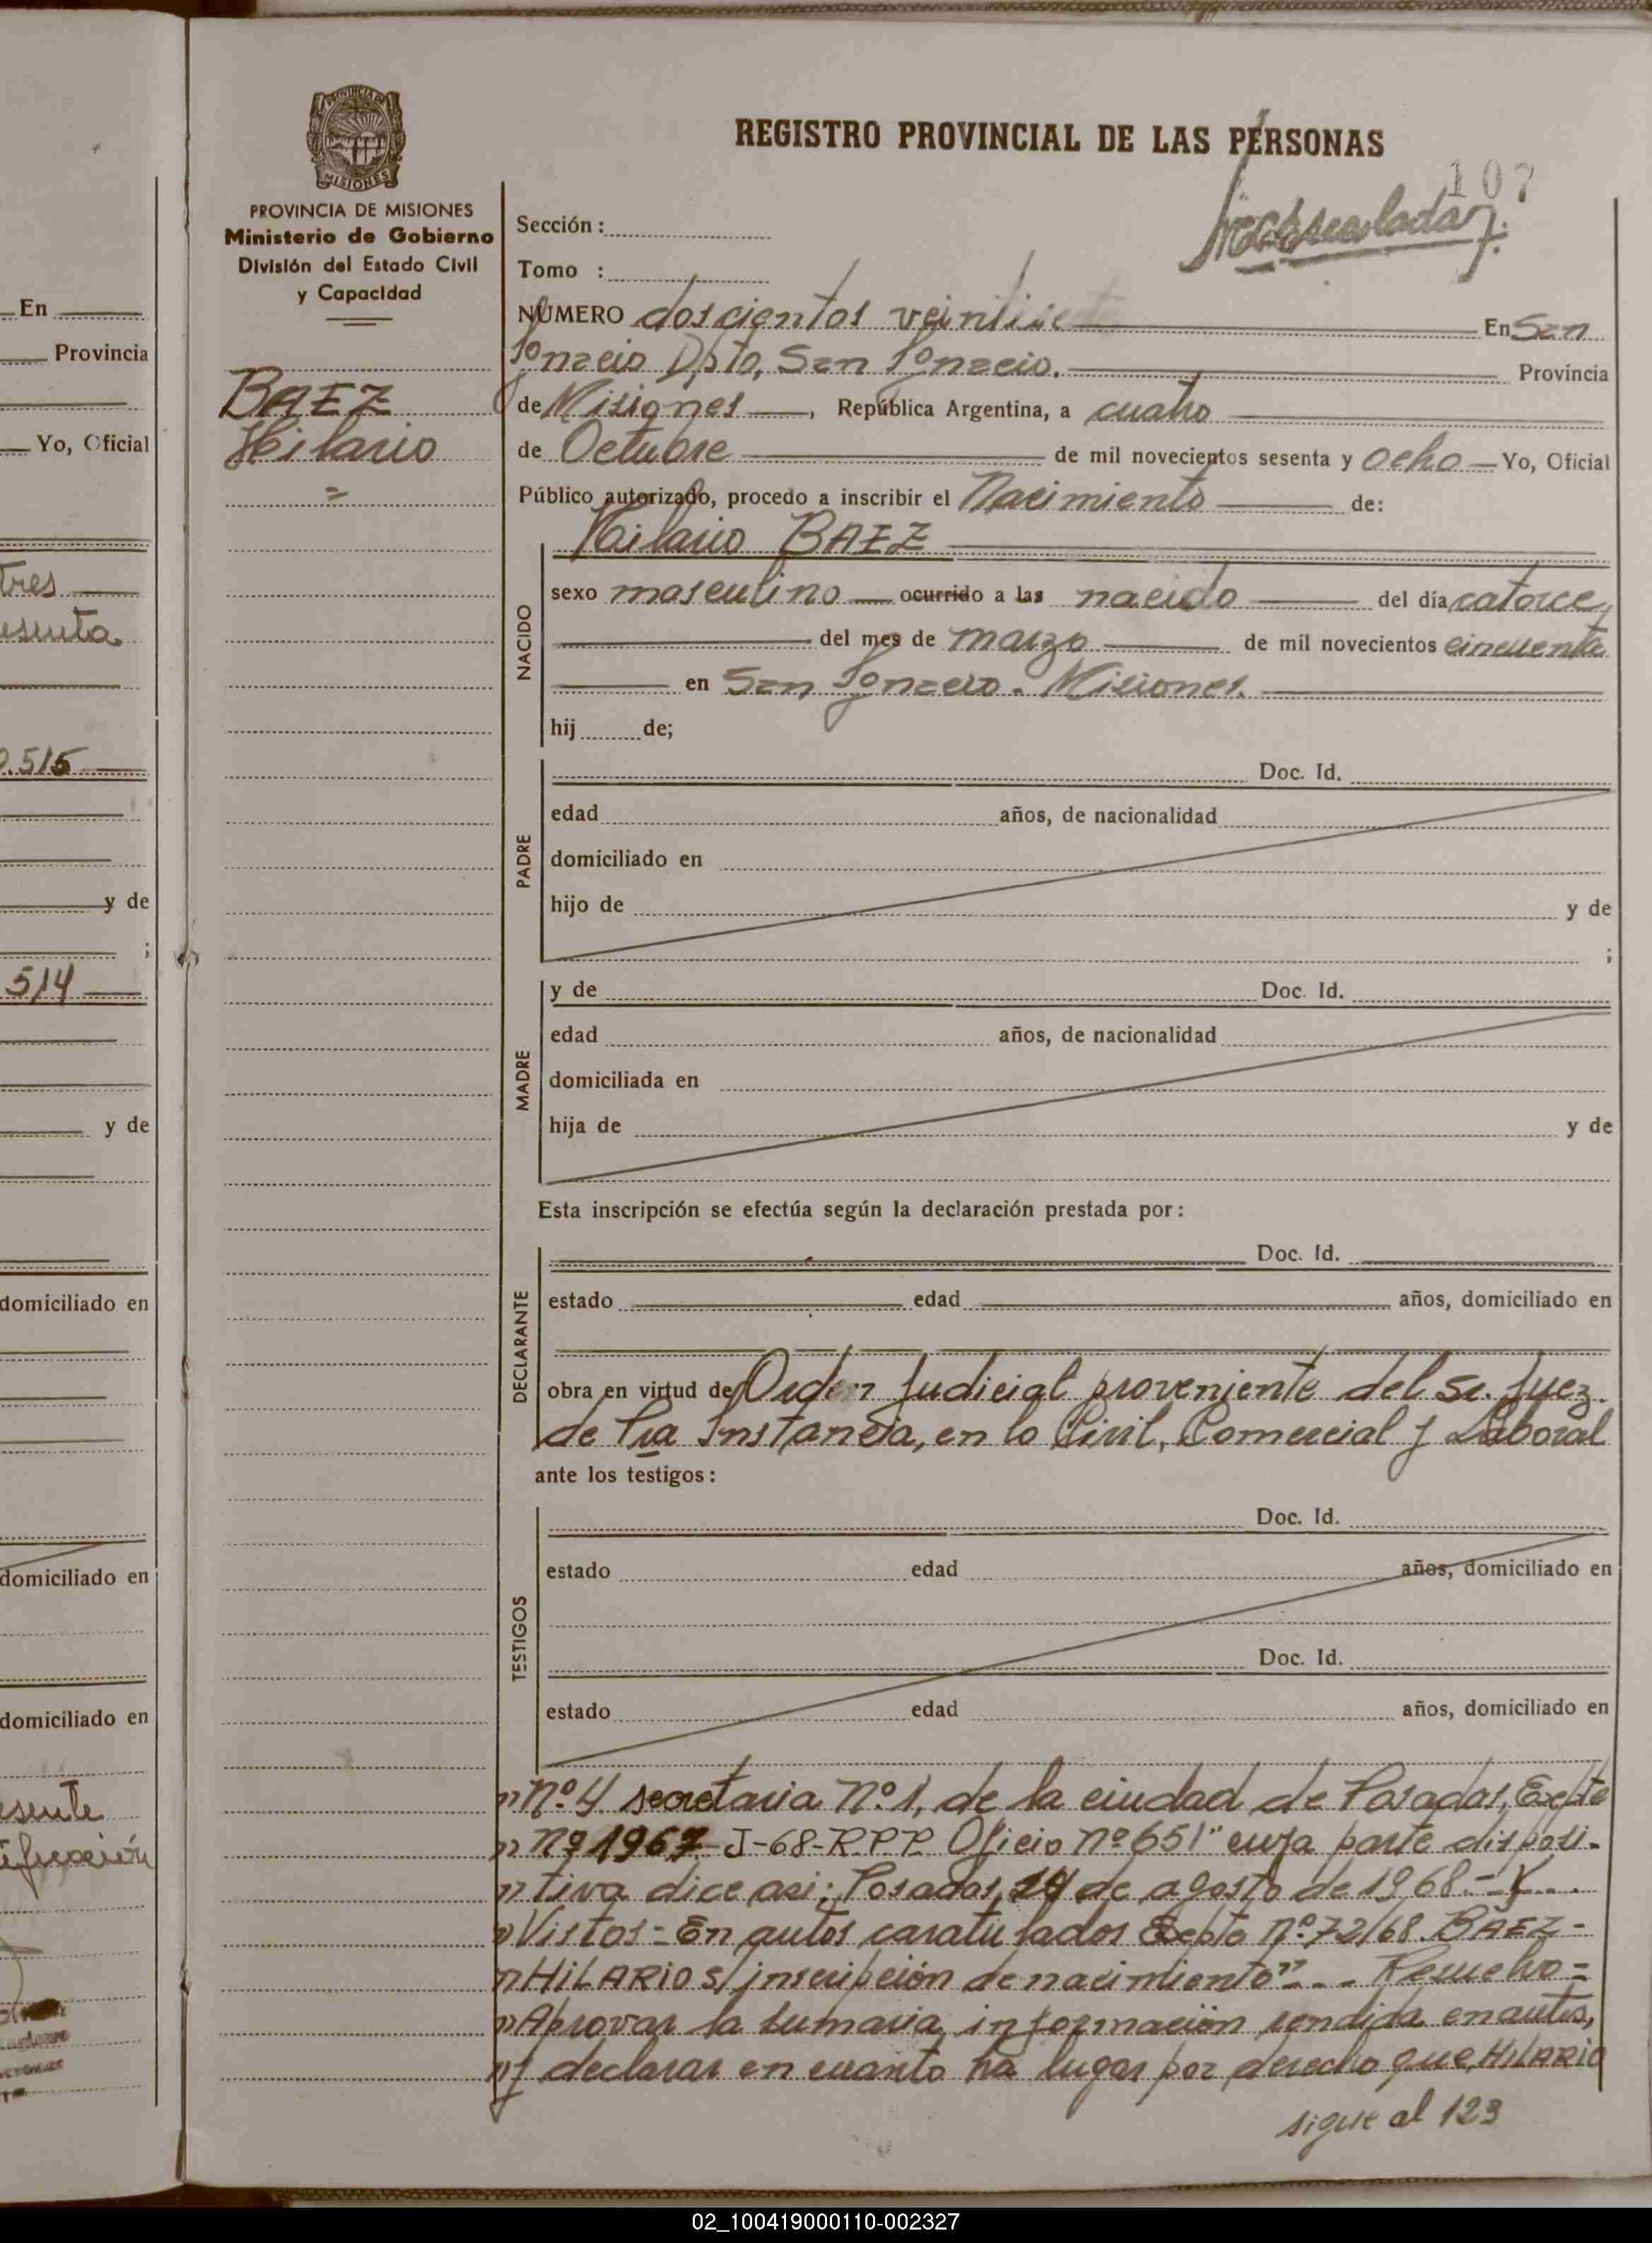 REGISTRO PROVINCIAL DE LAS PERSONAS
107
PROVINCIA DE MISIONES
Ministerio de Gobierno
División del Estado Civil
y Capacidad
BAEZ
Hilario
=
Sección :
Tomo :
NÚMERO doscientos En San
Ignacio Dpto, San Ignacio. Provincia
de Misiones, República Argentina, a cuatro
de Octubre de mil novecientos sesenta y ocho Yo, Oficial
Público autorizado, procedo a inscribir el Nacimiento de:
Hilario BAEZ
NACIDO
sexo masculino ocurrido a las nacido del día catorce,
del mes de marzo de mil novecientos cincuenta
en San Ignacio. Misiones.
hij de;
PADRE
Doc. Id.
edad años, de nacionalidad
domiciliado en
hijo de y de
;
MADRE
y de Doc. Id.
edad años, de nacionalidad
domiciliada en
hija de y de
Esta inscripción se efectúa según la declaración prestada por :
DECLARANTE
Doc. Id.
estado edad años, domiciliado en
obra en virtud de Orden Judicial proveniente del Sr. Juez.
de Pra Instancia, en lo Civil, Comercial y Laboral
ante los testigos :
TESTIGOS
Doc. Id.
estado edad años, domiciliado en
Doc. Id.
estado edad años, domiciliado en
"nº.4 secretaria Nº.1, de la ciudad de Posadas, Expte
"nº 1967 J-68-R.P.P. Oficio nº 651" cuya parte disposi-
"tiva dice asi: Posadas, de agosto de 1968.- Y...
"Vistos=En autos caratulados Expte nº.72/68. BAEZ-
"HILARIO S/inscripción de nacimiento"... Resuelvo=
"Aprovar la sumaria información rendida en autos,
"y declarar en cuanto ha lugar por derecho que, HILARIO
sigue al 123
En
Provincia
Yo, Oficial
tres
esenta
0.515
y de
;
514
y de
domiciliado en
domiciliado en
domiciliado en
esente
ificación
02_100419000110-002327